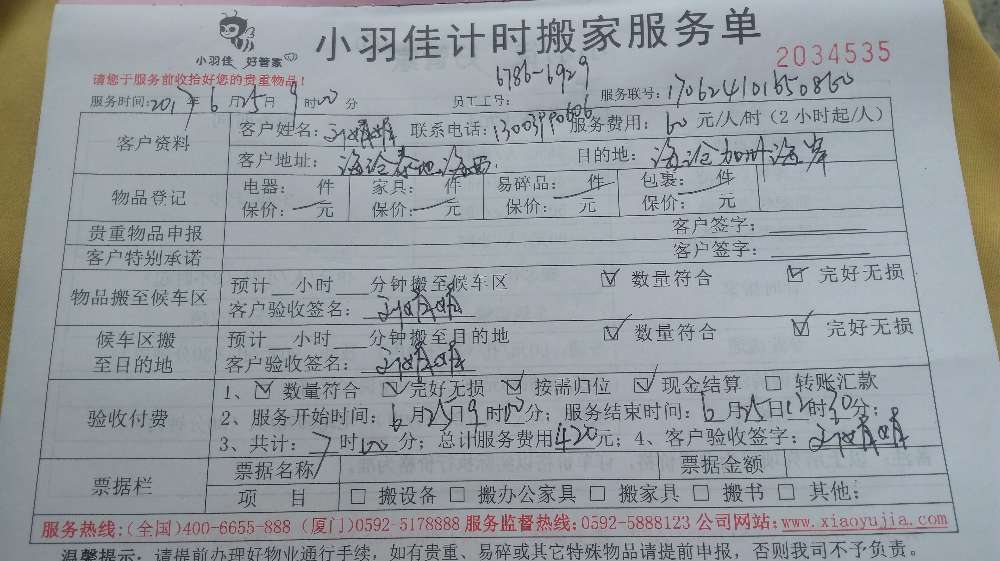 小羽佳 好管家
小羽佳计时搬家服务单
2034535
请您于服务前收拾好您的贵重物品！
6786-6929
服务时间:2017年6月25日9时00分 员工工号: 服务联号:
客户资料
客户姓名: 联系电话:13003990606 服务费用: 60 元/人/时（2小时起/人）
客户地址: 海沧泰地海西 目的地: 海沧加州海岸
物品登记
电器: 件 家具: 件 易碎品: 件 包裹: 件
保价: 元 保价: 元 保价: 元 保价: 元
贵重物品申报 客户签字:
客户特别承诺 客户签字:
物品搬至候车区
预计 小时 分钟搬至候车区 ☑ 数量符合 ☑ 完好无损
客户验收签名:
候车区搬至目的地
预计 小时 分钟搬至目的地 ☑ 数量符合 ☑ 完好无损
客户验收签名:
验收付费
1、☑ 数量符合 ☑ 完好无损 ☑ 按需归位 ☑ 现金结算 □ 转账汇款
2、服务开始时间: 6月25日9时00分; 服务结束时间: 6月25日12时30分;
3、共计: 7时00分; 总计服务费用420元; 4、客户验收签字:
票据栏
票据名称 票据金额
项 目 □ 搬设备 □ 搬办公家具 □ 搬家具 □ 搬书 □ 其他:
服务热线:(全国)400-6655-888 (厦门)0592-5178888 服务监督热线:0592-5888123 公司网站:www.xiaoyujia.com
温馨提示: 请提前办理好物业通行手续, 如有贵重、易碎或其它特殊物品请提前申报, 否则我司不予负责。